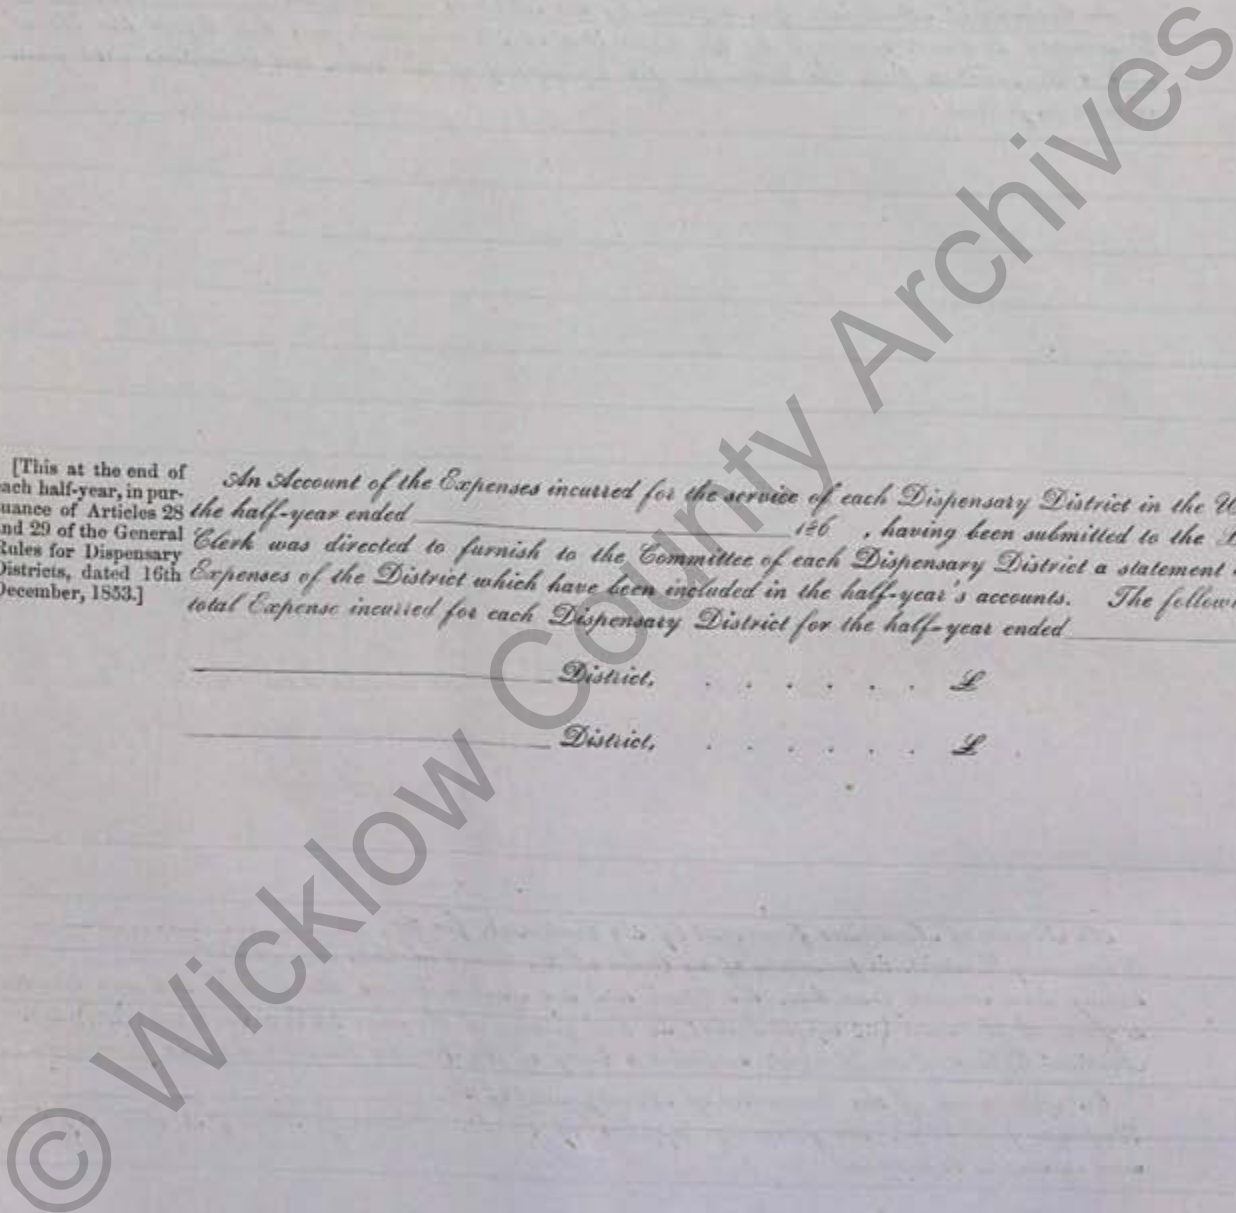 [This at the end of
each half-year, in pur-
suance of Articles 28
and 29 of the General
Rules for Dispensary
Districts, dated 16th
December, 1853.]
An Account of the Expenses incurred for the service of each Dispensary District in the
the half-year ended 186 , having been submitted to the
Clerk was directed to furnish to the Committee of each Dispensary District a statement
Expenses of the District which have been included in the half-year's accounts. The
total Expense incurred for each Dispensary District for the half-year ended
District, . . . . . . £
District, . . . . . . £
© Wicklow County Archives